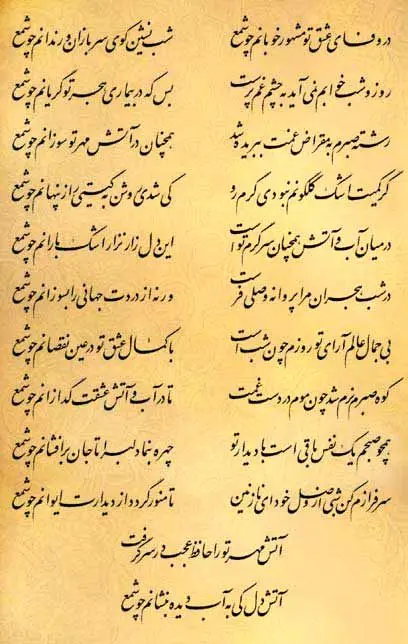 در وفای عشق تو مشهور خوبانم چو شمع
شب نشین کوی سربازان و رندانم چو شمع
روز و شب خوابم نمی آید به چشم غم پرست
بس که در بیماری هجر تو گریانم چو شمع
رشته صبرم به مقراض غمت ببریده شد
همچنان در آتش مهر تو سوزانم چو شمع
گر کمیت اشک گلگونم نبودی گرم رو
کی شدی روشن به گیتی راز پنهانم چو شمع
در میان آب و آتش همچنان سرگرم تو است
این دل زار نزار اشک بارانم چو شمع
در شب هجران مرا پروانه وصلی فرست
ورنه از دردت جهانی را بسوزانم چو شمع
بی جمال عالم آرای تو روزم چون شب است
با کمال عشق تو در عین نقصانم چو شمع
کوه صبرم نرم شد چون موم در دست غمت
تا در آب و آتش عشقت گدازانم چو شمع
همچو صبحم یک نفس باقی است با دیدار تو
چهره بنما دلبرا تا جان برافشانم چو شمع
سرفرازم کن شبی از وصل خود ای نازنین
تا منور گردد از دیدارت ایوانم چو شمع
آتش مهر تو را حافظ عجب در سر گرفت
آتش دل کی به آب دیده بنشانم چو شمع